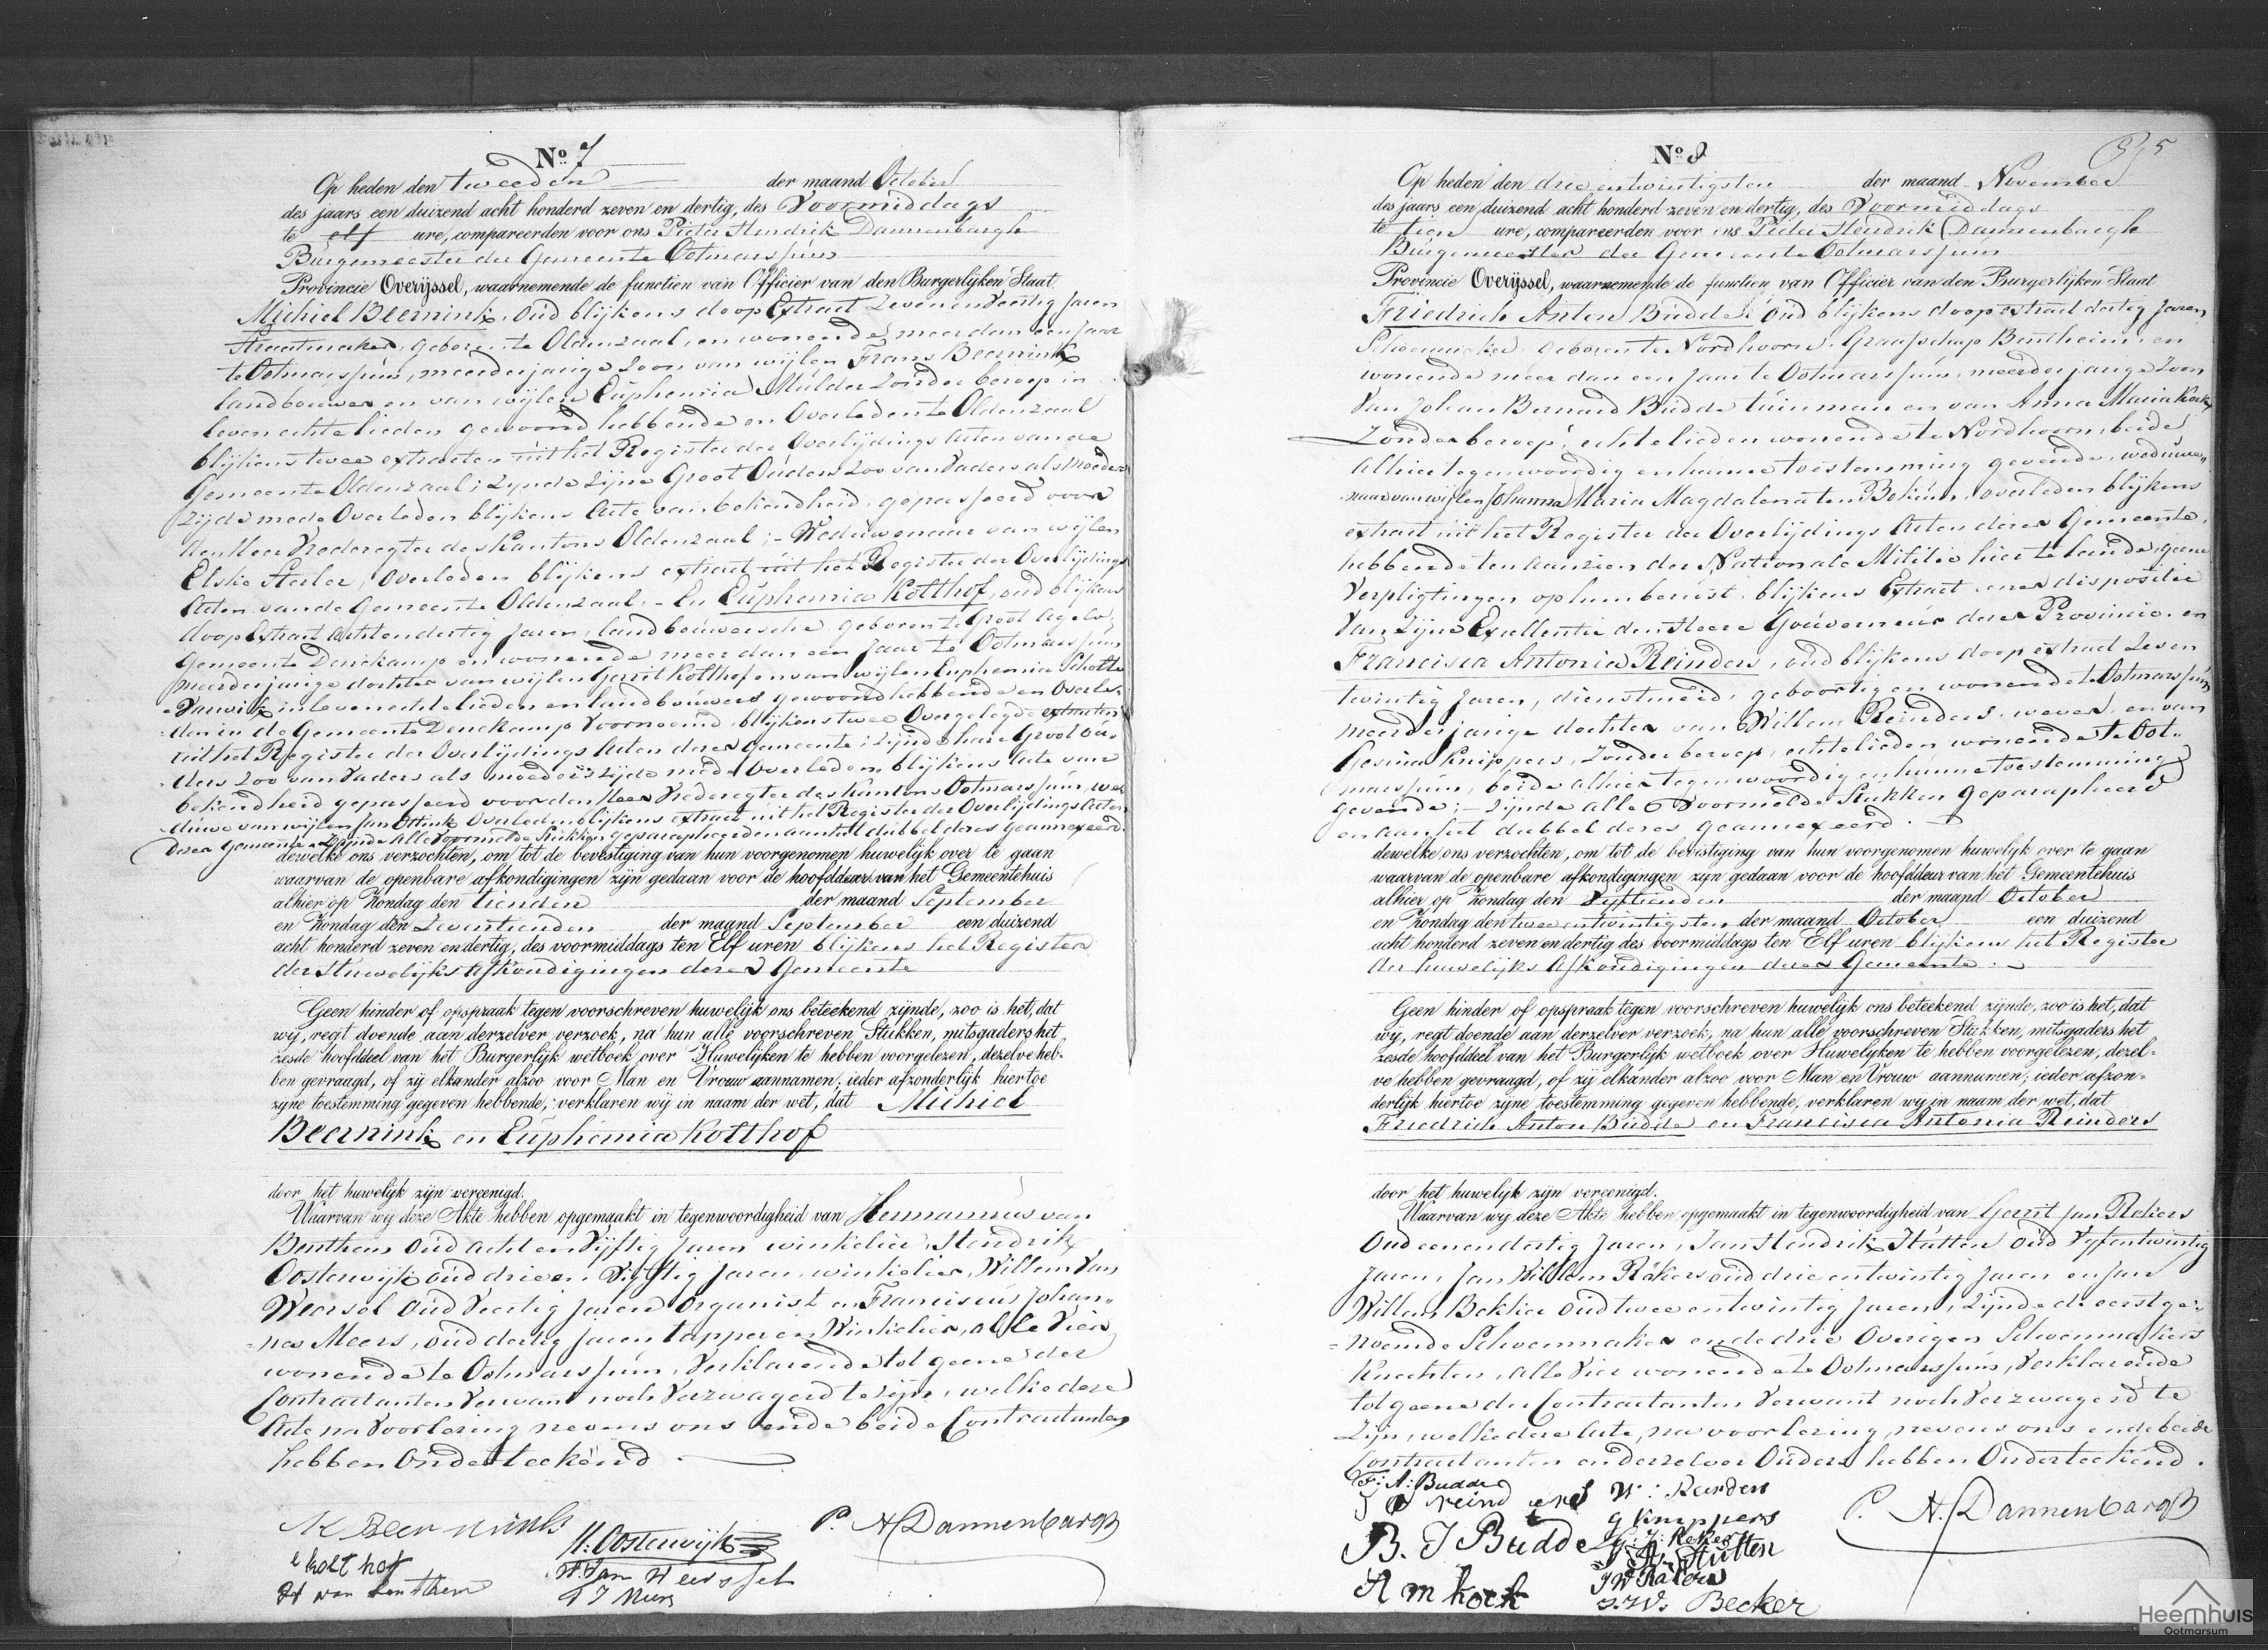 No. 7
Op heden den tweeden der maand October
des jaars een duizend acht honderd zeven en dertig, des Voormiddags
te elf ure, compareerden voor ons Pieter Hendrik Dannenbargh
Burgemeester der Gemeente Ootmarssum
Provincie Overijssel, waarnemende de functien van Officier van den Burgerlijken Staat
Michiel Beernink, oud blijkens doop Extract Zevenenveertig Jaren
Straatmaker, geboren te Oldenzaal, en wonende meer dan een Jaar
te Ootmarssum, meerderjarige Zoon van wijlen Frans Beernink
landbouwer en van wijlen Euphemia Mulder Zonder beroep in
leven echtelieden gewoond hebbende en Overleden te Oldenzaal
blijkens twee extracten uit het Register der Overlijdings Acten van de
Gemeente Oldenzaal; zynde zijne Groot Ouders zoo van Vaders als Moeders
zijde mede Overleden blijkens Acte van bekendheid, gepasseerd voor
den Heer Vrederegter des Kantons Oldenzaal; - Weduwenaar van wijlen
Elske Steler, Overleden blijkens extract uit het Register der Overlijdings
Acten van de Gemeente Oldenzaal. - En Euphemia Kotthof, oud blijkens
doop Extract achtendertig Jaren, landbouwersche geboren te Groot Agelo,
Gemeente Denekamp en wonende meer dan een Jaar te Ootmarssum
meerderjarige dochter van wijlen Gerrit Kotthof en van wijlen Euphemia Scholte
Varwik in leven echtelieden en landbouwers gewoond hebbende en Overle-
den in de Gemeente Denekamp voornoemd, blijkens twee Overgelegde extracten
uit het Register der Overlijdings Acten derer Gemeente; zijnde hare Groot Ou-
ders zoo van Vaders als moeders zijde mede Overleden, blijkens Acte van
bekendheid gepasseerd voor den Heer Vrederegter des Kantons Ootmarssum, we-
duwe van wijlen Jan Ottink Overleden blijkens extract uit het Register der Overlijdings Acten
derer Gemeente. Zijnde alle voormelde Stukken geparapheerd en aan het dubbel deres geannexeerd.
dewelke ons verzochten, om tot de bevestiging van hun voorgenomen huwelijk over te gaan
waarvan de openbare afkondigingen zijn gedaan voor de hoofddeur van het Gemeentehuis
alhier op Zondag den tienden der maand September
en Zondag den Zeventienden der maand September een duizend
acht honderd zeven en dertig, des voormiddags ten Elf uren blijkens het Register
der Huwelijks Afkondigingen derer Gemeente
Geen hinder of opspraak tegen voorschreven huwelijk ons beteekend zijnde, zoo is het, dat
wij, regt doende aan derzelver verzoek, na hun alle voorschreven Stukken, mitsgaders het
zesde hoofddeel van het Burgerlijk wetboek over Huwelijken te hebben voorgelezen, dezelve heb-
ben gevraagd, of zij elkander alzoo voor Man en Vrouw aannamen; ieder afzonderlijk hiertoe
zijne toestemming gegeven hebbende, verklaren wij in naam der wet, dat Michiel
Beernink en Euphemia Kotthof
door het huwelijk zijn vereenigd.
Waarvan wij deze Akte hebben opgemaakt in tegenwoordigheid van Hermannus van
Benthem oud acht en Vijftig Jaren winkelier, Hendrik
Oosterwijk oud drieen Vijftig Jaren, winkelier, Willem Van
Weersel oud Veertig Jaren Organist en Franciscus Johan-
nes Meers, oud dertig Jaren tapper en Winkelier, alle Vier
wonende te Ootmarssum, Verklarende tot geene der
Contractanten Verwant noch Verzwagerd te zijn, welke deze
Acte na Voorlezing nevens ons ende beide Contractanten
hebben Onderteekend.
M Beernink
E kolthof
H van benthem
H: Oosterwijk
W. Van Weersel
F J Meers
P. H. Dannenbargh
No. 8
Op heden den drie entwintigsten der maand November
des jaars een duizend acht honderd zeven en dertig, des Voormiddags
te tien ure, compareerden voor ons Pieter Hendrik Dannenbargh
Burgemeester der Gemeente Ootmarssum
Provincie Overijssel, waarnemende de functien van Officier van den Burgerlijken Staat
Friedrich Anton Budde, oud blijkens doop extract dertig Jaren
Schoenmaker, geboren te Nordhoorn, Graafschap Bentheim, en
wonende meer dan een Jaar te Ootmarssum, meerderjarige Zoon
Van Johan Bernard Budde tuinman en van Anna Maria Kock
Zonder beroep, echtelieden wonende te Nordhoorn, beide
alhier tegenwoordig en hunne toestemming gevende, weduwe-
naar van wijlen Johanna Maria Magdalena ten Bokum, overleden blijkens
extract uit het Register der Overlijdings Acten derer Gemeente,
hebbende ten aanzien der Nationale Militie hier te lande geene
Verpligtingen op hem berust, blijkens Extract eener dispositie
Van Zijne Excellentie den Heere Gouverneur derer Provincie. en
Francisca Antonia Reinders, oud blijkens doop extract Zeven
twintig Jaren, dienstmeid, geboortig en wonende te Ootmarssum
meerderjarige dochter van Willem Reinders, wever, en van
Gesina Knippers, Zonder beroep, echtelieden wonende te Oot-
marssum, beide alhier tegenwoordig en hunne toestemming
gevende; - zijnde alle voormelde Stukken geparapheerd
en aan het dubbel deres geannexeerd.
dewelke ons verzochten, om tot de bevestiging van hun voorgenomen huwelijk over te gaan
waarvan de openbare afkondigingen zijn gedaan voor de hoofddeur van het Gemeentehuis
alhier op Zondag den Vyftienden der maand October
en Zondag den twee entwintigsten der maand October een duizend
acht honderd zeven en dertig des voormiddags ten Elf uren blijkens het Register
der huwelijks Afkondigingen derer Gemeente.
Geen hinder of opspraak tegen voorschreven huwelijk ons beteekend zijnde, zoo is het, dat
wij, regt doende aan derzelver verzoek, na hun alle voorschreven Stukken, mitsgaders het
zesde hoofddeel van het Burgerlijk wetboek over Huwelyken te hebben voorgelezen, dezel-
ve hebben gevraagd, of zij elkander alzoo voor Man en Vrouw aannamen; ieder afzon-
derlijk hiertoe zijne toestemming gegeven hebbende, verklaren wij in naam der wet, dat
Friedrich Anton Budde en Francisca Antonia Reinders
door het huwelijk zijn vereenigd.
Waarvan wij deze Akte hebben opgemaakt in tegenwoordigheid van Gerrit Jan Rokers
Oud eenendertig Jaren, Jan Hendrik Stutten oud Vyfentwintig
Jaren, Jan Willem Rakers oud drie entwintig Jaren en Jan
Willem Bekker oud twee entwintig Jaren, zijnde de eerstge-
noemde Schoenmaker en de drie Overigen Schoenmakers
Knechten, alle Vier wonende te Ootmarssum, Verklarende
tot geene der Contractanten Verwant noch Verzwagerd te
Zijn, welke deze Acte, na voorlezing nevens ons ende beide
Contractanten en derzelver Ouders hebben Onderteekend.
F: A: Budde
W: Reinders
g knippers
B. J Budde
A m kock
J W Rakers
J. W. Becker
P. H. Dannenbargh
Heemhuis
Ootmarsum